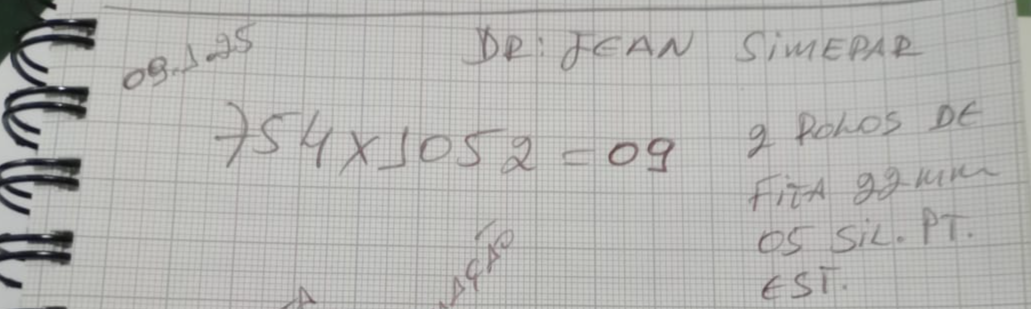 09.1.25
DR: JEAN SIMEPAR
754x1052 = 09
2 ROLOS DE
FITA 22mm
05 SIL. PT.
EST.